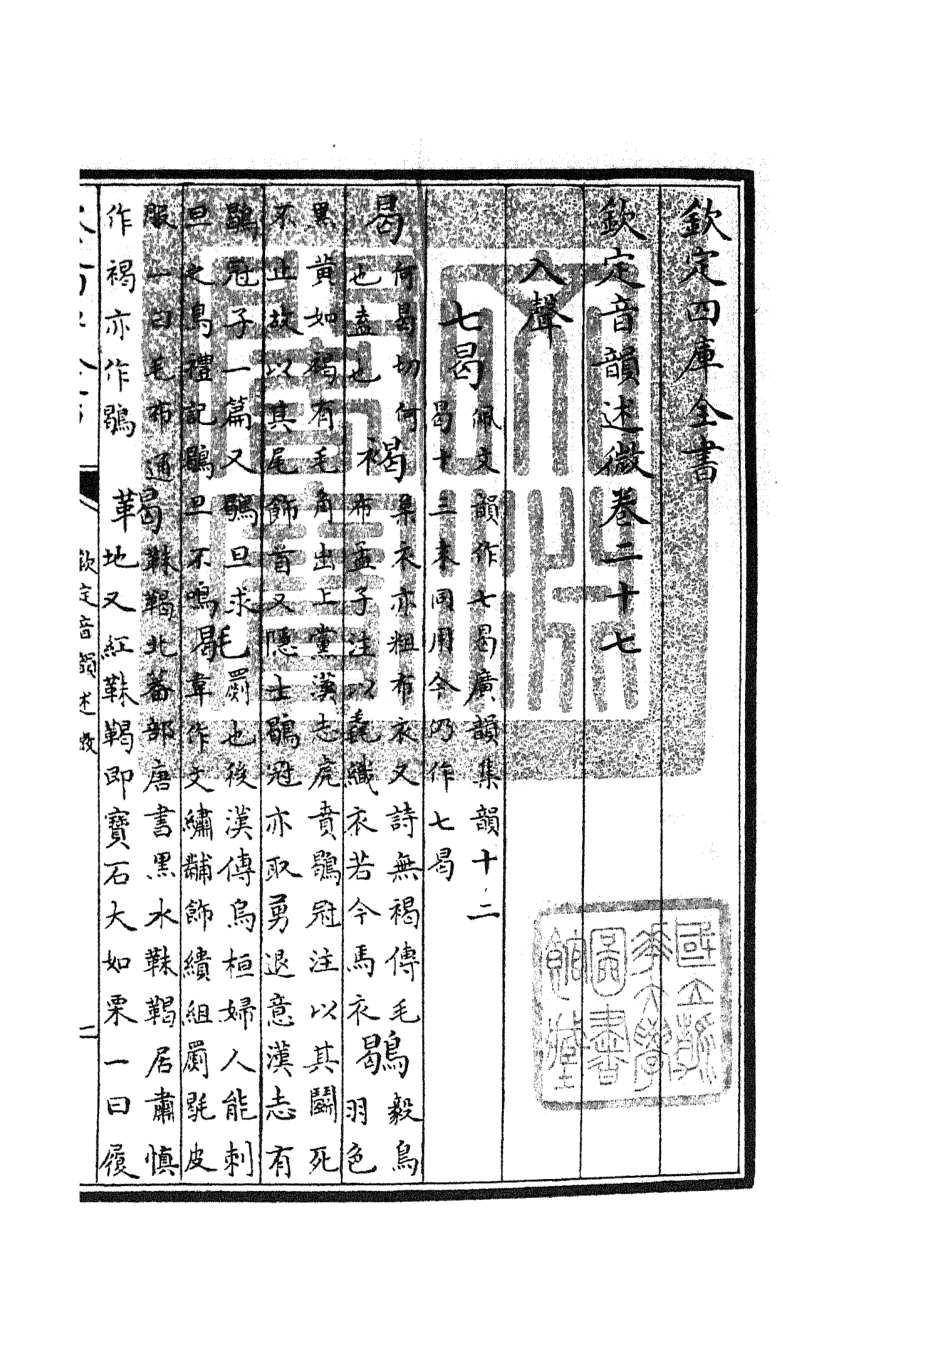 欽定四庫全書
欽定音韻述微卷二十七
入聲
七曷 佩文韻作七曷廣韻集韻十二
曷十三末同用今仍作七曷
曷 何曷切何
也盍也
褐 枲衣亦粗布衣又詩無褐傳毛
布孟子注以毳織衣若今馬衣
鶡 毅鳥
羽色
黑黃如褐有毛角出上黨漢志虎賁鶡冠注以其鬭死
不止故以其尾飾首又隱士鶡冠亦取勇退意漢志有
鶡冠子一篇又鶡旦求
旦之鳥禮記鶡旦不鳴
毼 罽也後漢傳烏桓婦人能刺
韋作文繡黼飾繢組罽毼皮
服一曰毛布通
作褐亦作鶡
鞨 靺鞨北蕃部唐書黑水靺鞨居肅慎
地又紅靺鞨即寶石大如栗一曰履
欽定音韻述微
國立
華大學
圖書
館藏